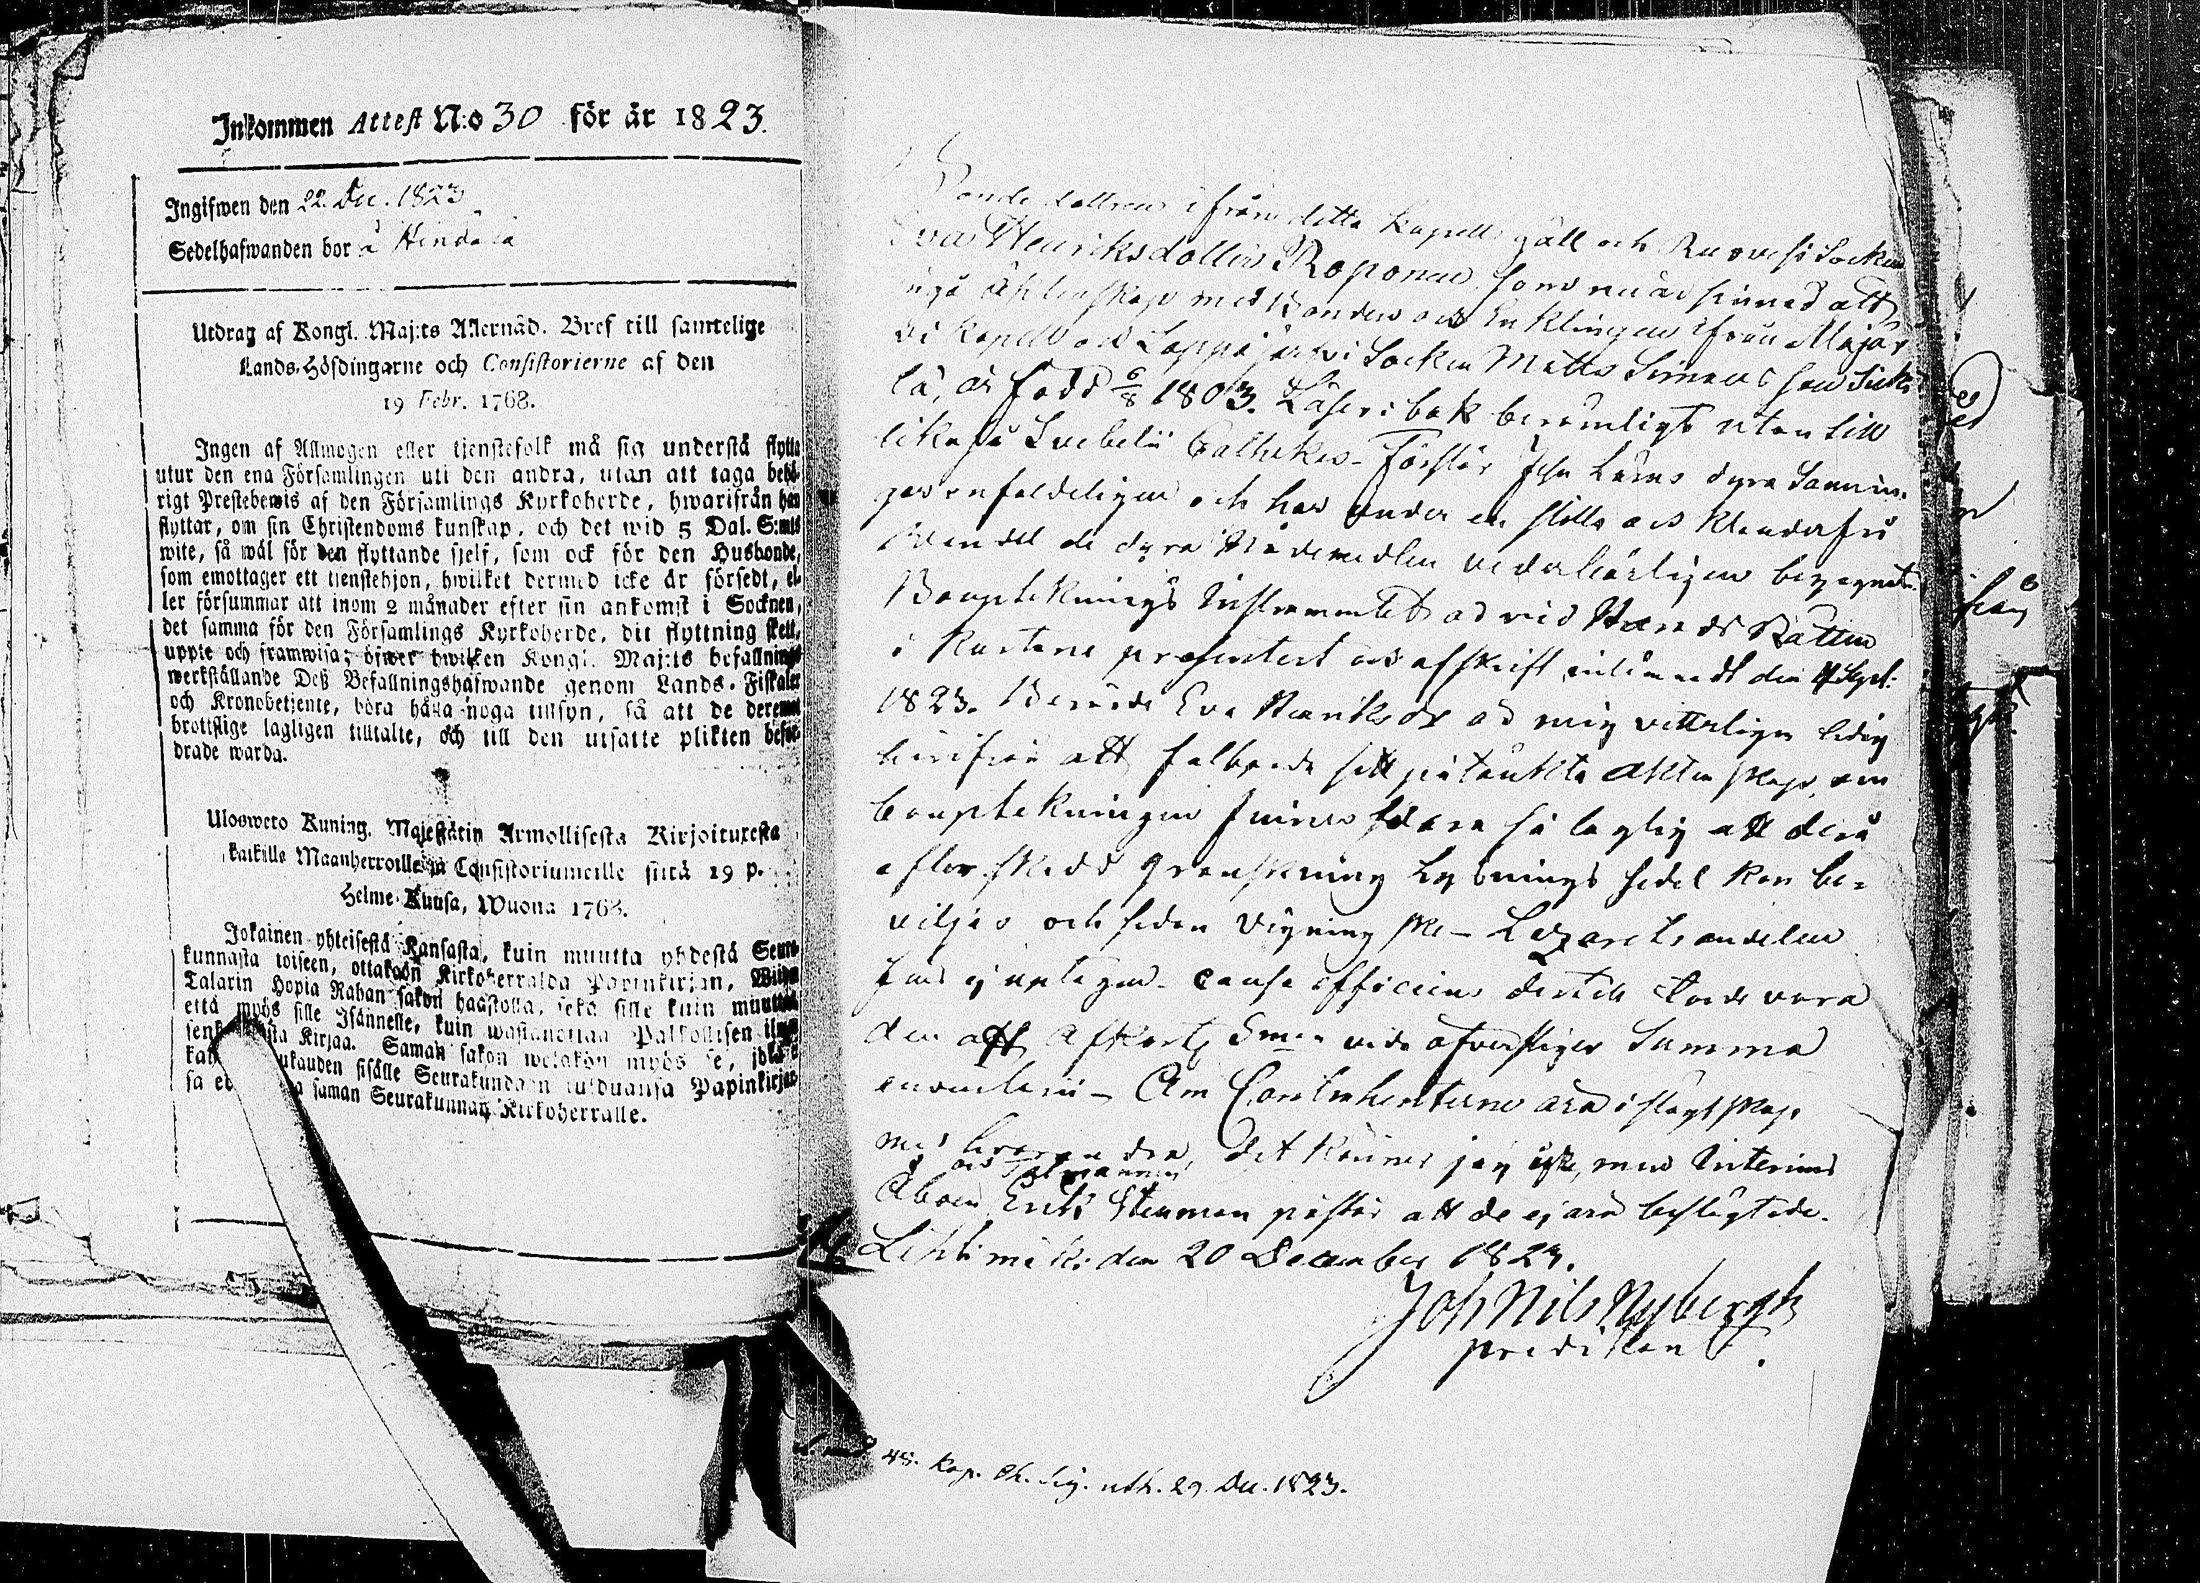 Inkommen Attest N:o 30 för år 1823.
Ingifwen den 22. Dec. 1823
Sedelhafwanden bor å
Utdrag af Kongl. Maj:ts Allernåd. Bref till samtelige
Lands-Höfdingarne och Consistorierne af den
19 Febr. 1768.
Ingen af Allmogen eller tjenstefolk må sig understå flytta
utur den ena Församlingen uti den andra, utan att taga behö-
rigt Prestebewis af den Församlings Kyrkoherde, hwarifrån han
flyttar, om sin Christendoms kunskap, och det wid 5 Dal. S:mts
wite, så wäl för den flyttande sjelf, som ock för den Husbonde,
som emottager ett tjenstehjon, hwilket dermed icke är försedt, el-
ler försummar att inom 2 månader efter sin ankomst i Socknen,
det samma för den Församlings Kyrkoherde, dit flyttning skett,
uppte och framwisa; öfwer hwilken Kongl. Maj:ts befallnings
werkställande Deß Befallningshafwande genom Lands-Fiskaler
och Kronobetjente, böra hålla noga tillsyn, så att de deremot
brottslige lagligen tilltalte, och till den utsatte plikten befor-
drade warda.
Ulosweto Kuning. Majestätin Armollisesta Kirjoituresta
kaikille Maanherroille ja Consistoriumeille siitä 19 p.
Helme-Kuusa, Wuona 1768.
Jokainen yhteisestä Kansasta, kuin muutta yhdestä Seura-
kunnasta toiseen, ottakoon Kirkoherralda Papinkirjan, Wiiden
Talarin Hopia Rahan sakon haastolla, sekä sille kuin muuttaa
että myös sille Isännelle, kuin wastanottaa Palkollisen ilman
Kirjaa. Saman sakon wetäkön myös se, joka
kauden sisälle Seurakundaan tulduansa Papinkirjan
saman Seurakunnan Kirkoherralle.
Bonde dottren ifrån detta Kapell gäll och Ruovesi Socken
Eva Henriksdotter Roponen, som nu är sinnad att
ingå äktenskap med Bonden och Enklingen ifrån
Kapell och Lappajärvi Socken Matts Simons son
lä, är född 6/8 1803. Läser i bok berömligt utan till
lika så Svebelii Cathekes- Förstår Jesu Läras dyra Sannin-
gar enfaldeligen och har under en stilla och klanderfri
vandel de dyra Nådemedlen vederbörligen begagnat.
Boupteknings Instrumentet är vid Härads Rätten
i Kurtane presenterat och afskrift inlämnadt den 4 Sept:
1823. Berörde Eva Henriksdr är mig vetterligen ledig
härifrån att fullborda sitt påtänkta äktenskap, om
bouptekningen finnes vara så laglig att derå
efter skedd granskning Lysnings sedel kan be-
viljas och sedan Vigning ske - Lazaretsandelen
fins ej uptagen - causa efficiens dertill torde vara
den att afkort
Om Contrahenterne äro i slägtskap
med hvarandra, det känner jag icke, men Interims
och Talmannen
Åboen Erik Stenman påstår att de ej äro beslägtade.
Lehtimäki den 20 December 1823.
Joh Nils Nybergh
predikant.
48. Kap. uth. 29. Dec. 1823.